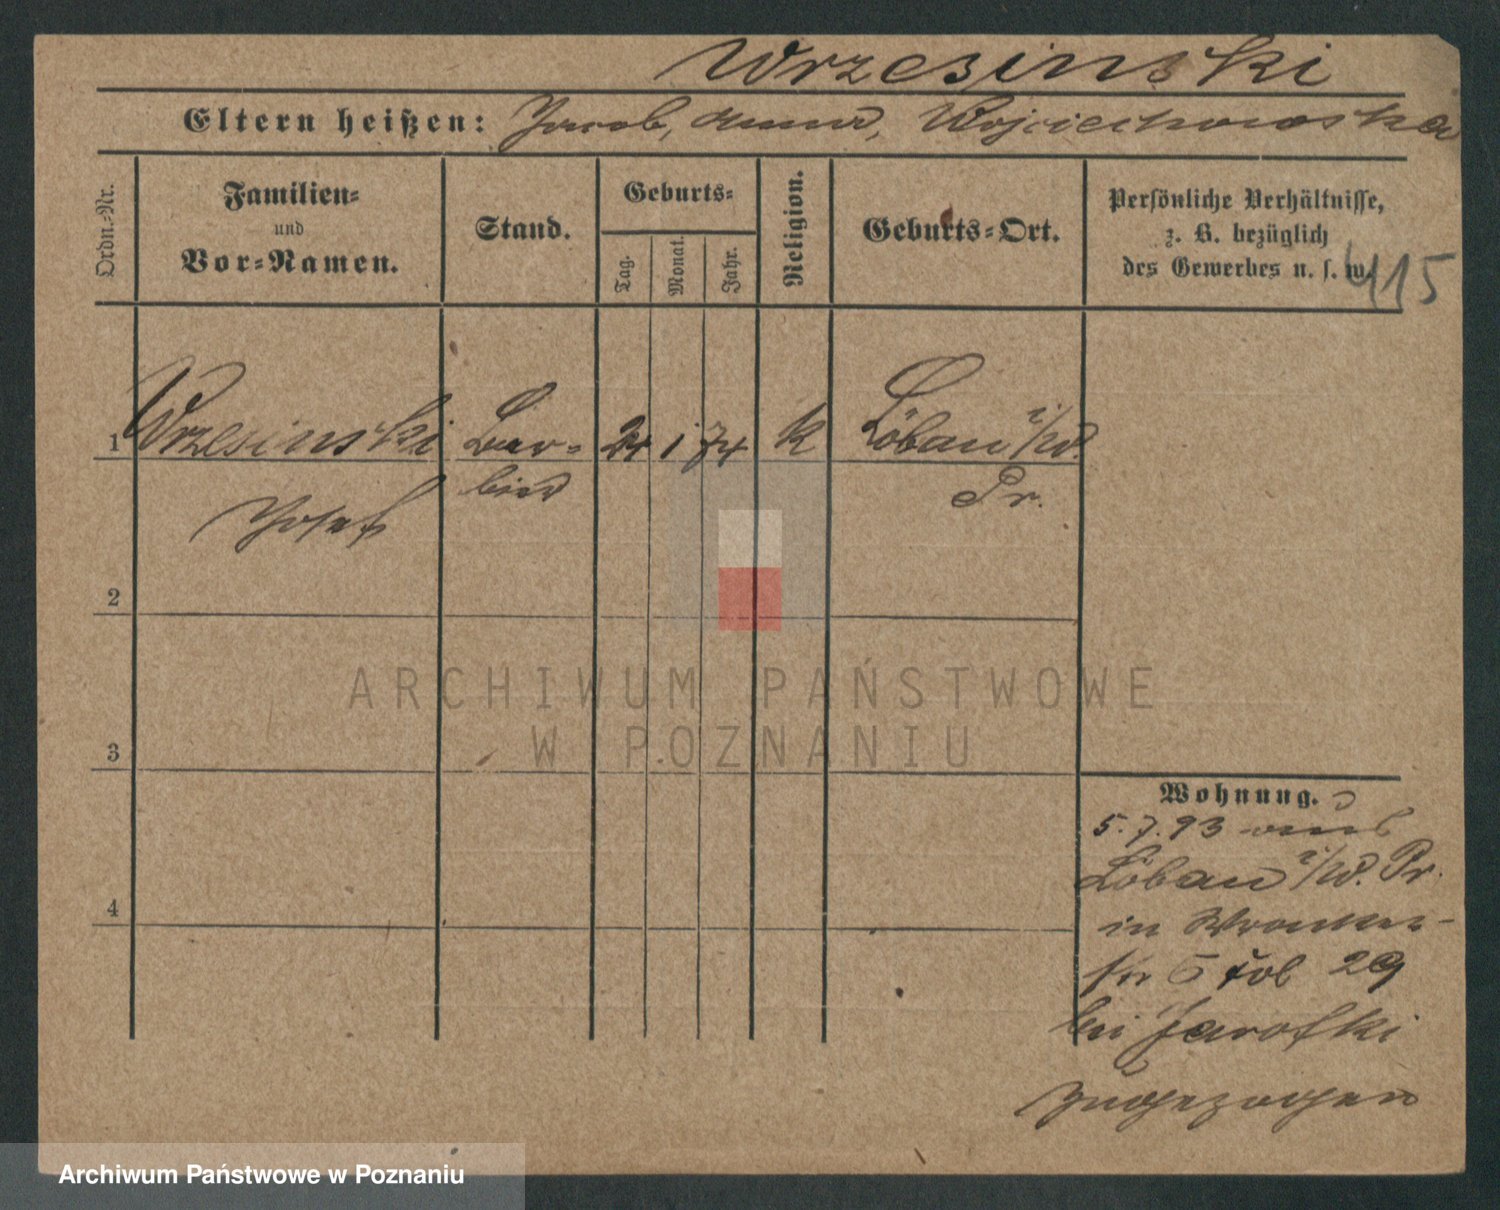 Wrzesinski
Eltern heißen: Jacob, Anna, Wojciechowska
Ordn.=Nr.
Familien=
und
Vor=Namen.
Stand.
Geburts=
Tag.
Monat.
Jahr.
Religion.
Geburts=Ort.
Persönliche Verhältnisse,
z. B. bezüglich
des Gewerbes u. s. w.
415
1 Wrzesinski Bar= 24 1 74 k Löbau i/W.
Josef bier Pr.
2
3
4
Wohnung.
5.7.93 aus
Löbau i/W. Pr.
in Wronker-
str 29
bei Jarofki
zugezogen
ARCHIWUM PAŃSTWOWE
W POZNANIU
Archiwum Państwowe w Poznaniu